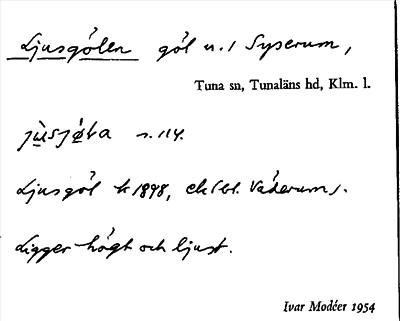 Ljusgölen göl n. i Syserum,
Tuna sn, Tunaläns hd, Klm. l.
jùsjö̀ta s. 114.
Ljusgöl k 1898, ek (bl. Väderum).
Ligger högt och ljust.
Ivar Modéer 1954